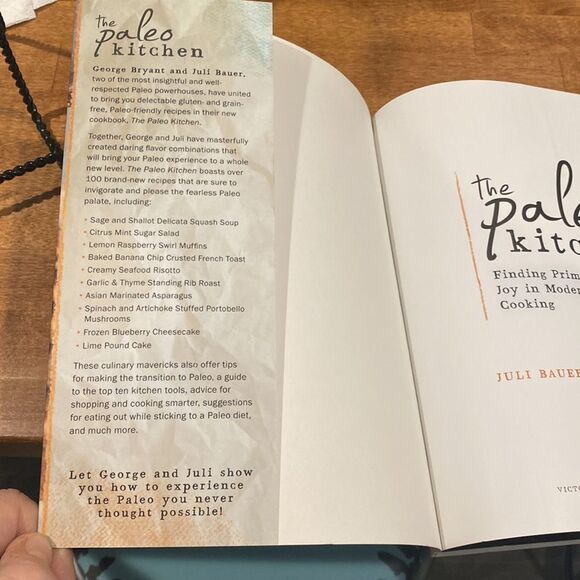 the
paleo
kitchen
George Bryant and Juli Bauer,
two of the most insightful and well-
respected Paleo powerhouses, have united
to bring you delectable gluten- and grain-
free, Paleo-friendly recipes in their new
cookbook, The Paleo Kitchen.
Together, George and Juli have masterfully
created daring flavor combinations that
will bring your Paleo experience to a whole
new level. The Paleo Kitchen boasts over
100 brand-new recipes that are sure to
invigorate and please the fearless Paleo
palate, including:
• Sage and Shallot Delicata Squash Soup
• Citrus Mint Sugar Salad
• Lemon Raspberry Swirl Muffins
• Baked Banana Chip Crusted French Toast
• Creamy Seafood Risotto
• Garlic & Thyme Standing Rib Roast
• Asian Marinated Asparagus
• Spinach and Artichoke Stuffed Portobello
Mushrooms
• Frozen Blueberry Cheesecake
• Lime Pound Cake
These culinary mavericks also offer tips
for making the transition to Paleo, a guide
to the top ten kitchen tools, advice for
shopping and cooking smarter, suggestions
for eating out while sticking to a Paleo diet,
and much more.
Let George and Juli show
you how to experience
the Paleo you never
thought possible!
the
pale
kitc
Finding Prim
Joy in Moder
Cooking
JULI BAUER
VICTO